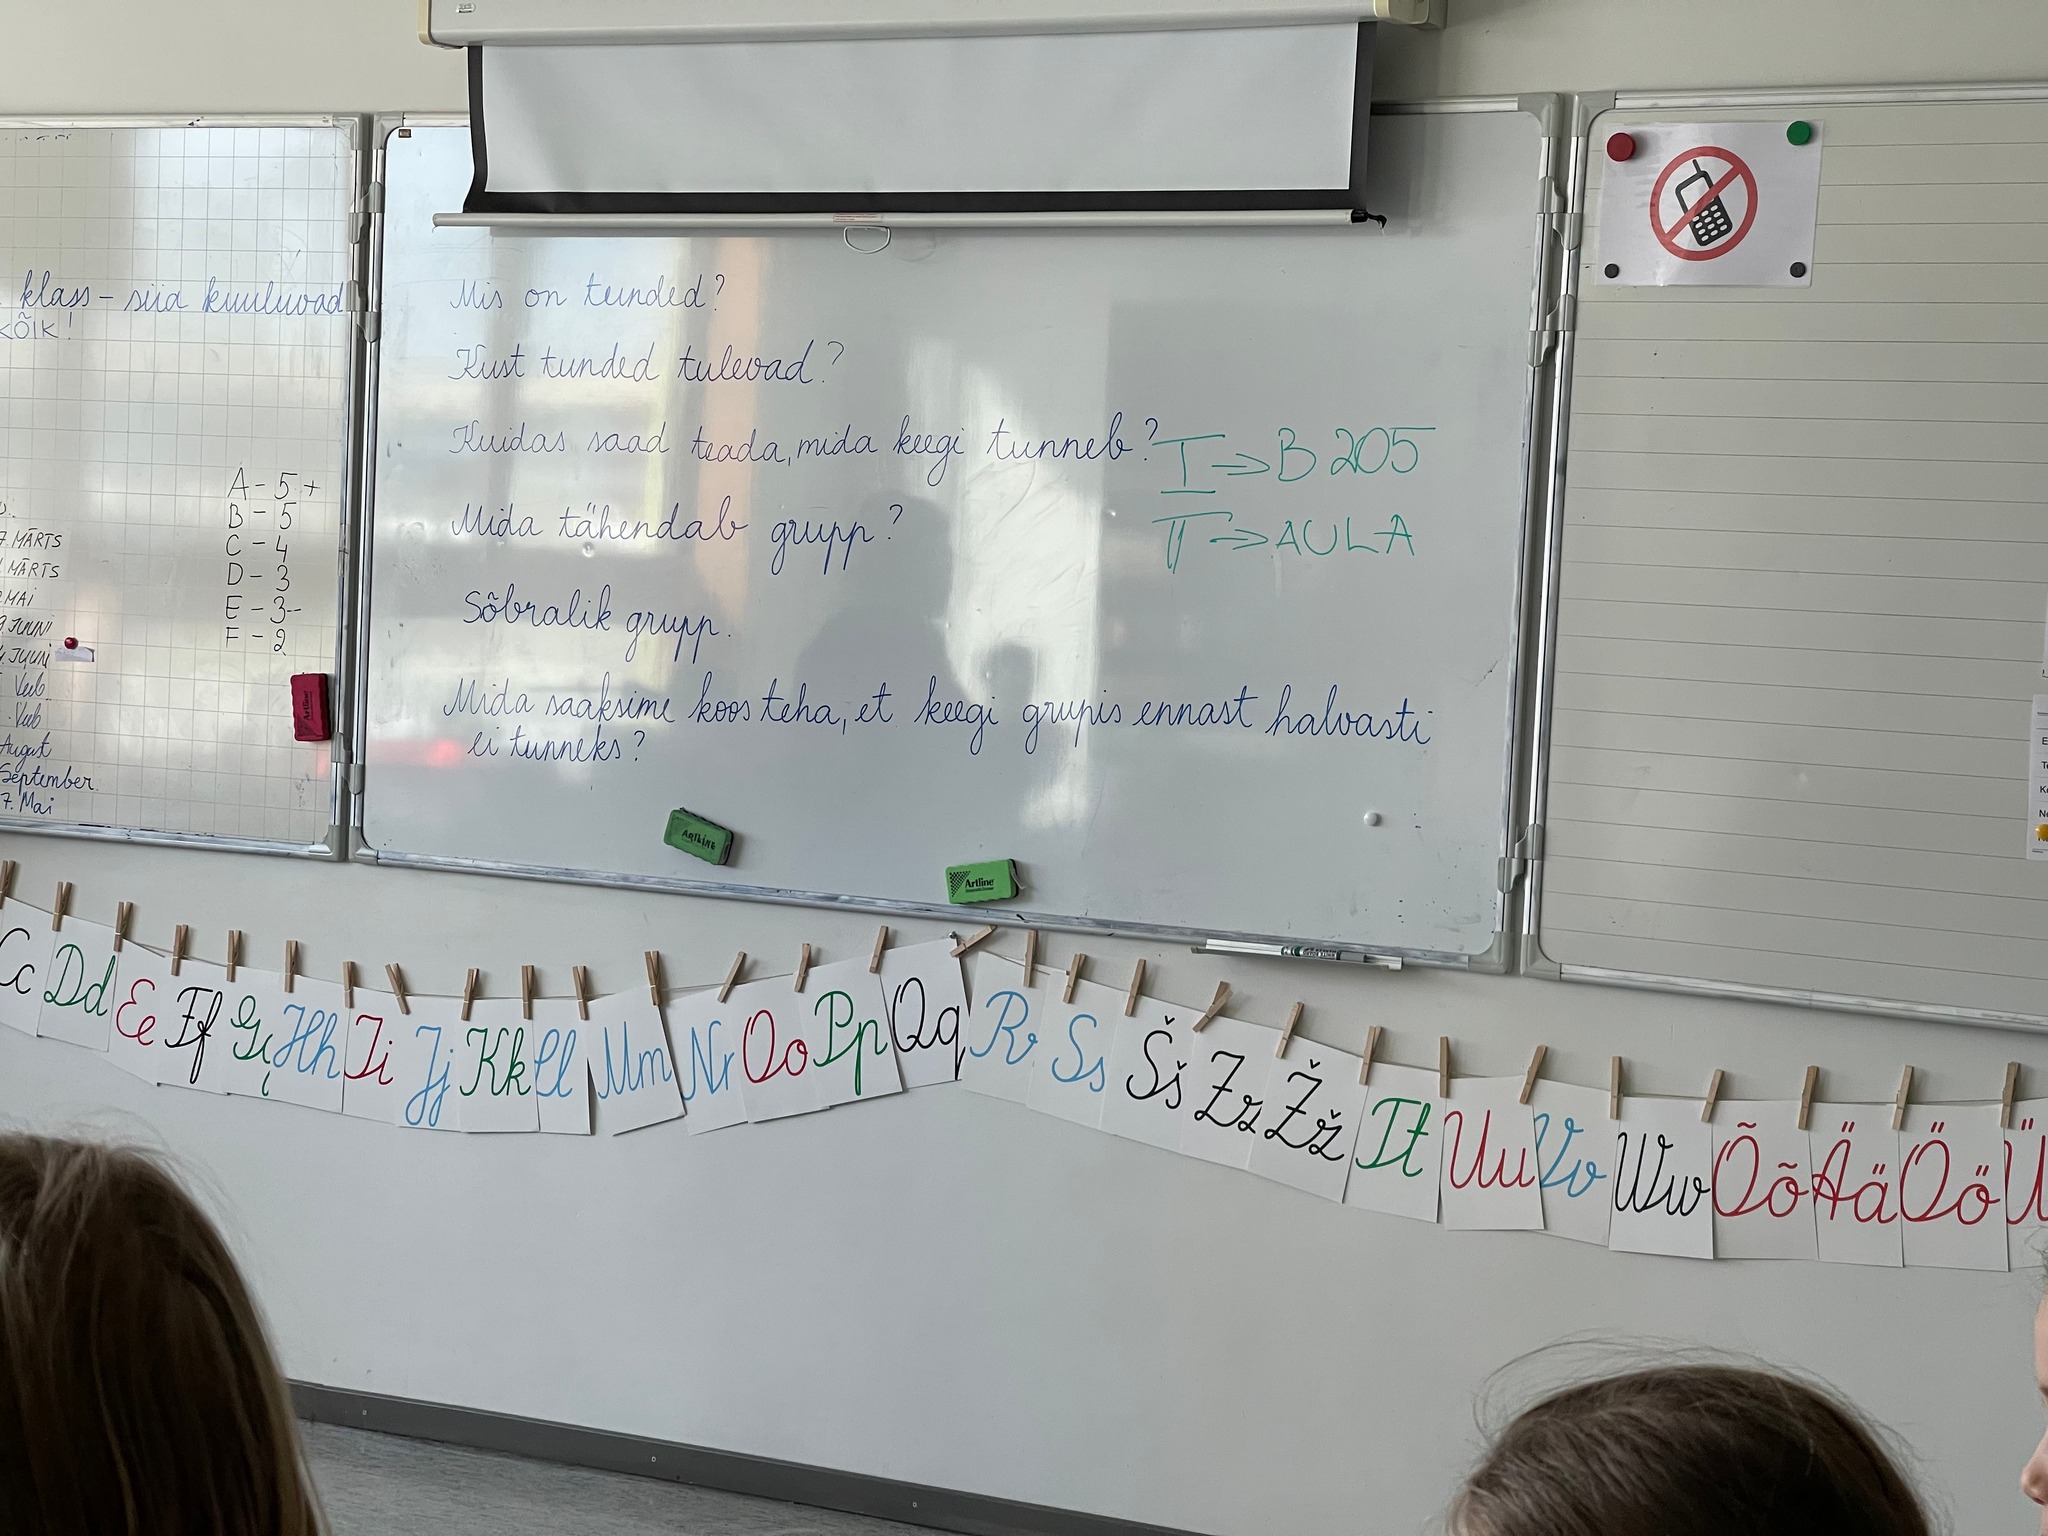 klass – siia kuuluvad
KÕIK!
A – 5+
B – 5
C – 4
D – 3
E – 3--
F – 2
MÄRTS
MÄRTS
MAI
JUUNI
JUUNI
Veeb
Veeb
August
September
7. Mai
Artline
Mis on tunded?
Kust tunded tulevad?
Kuidas saad teada, mida keegi tunneb?
Mida tähendab grupp?
Sõbralik grupp.
Mida saaksime koos teha, et keegi grupis ennast halvasti
ei tunneks?
I → B 205
II → AULA
Artline
Artline
Cc Dd Ee Ff Gg Hh Ii Jj Kk Ll Mm Nn Oo Pp Qq Rr Ss Šš Zz Žž Tt Uu Vv Ww Õõ Ää Öö Ü